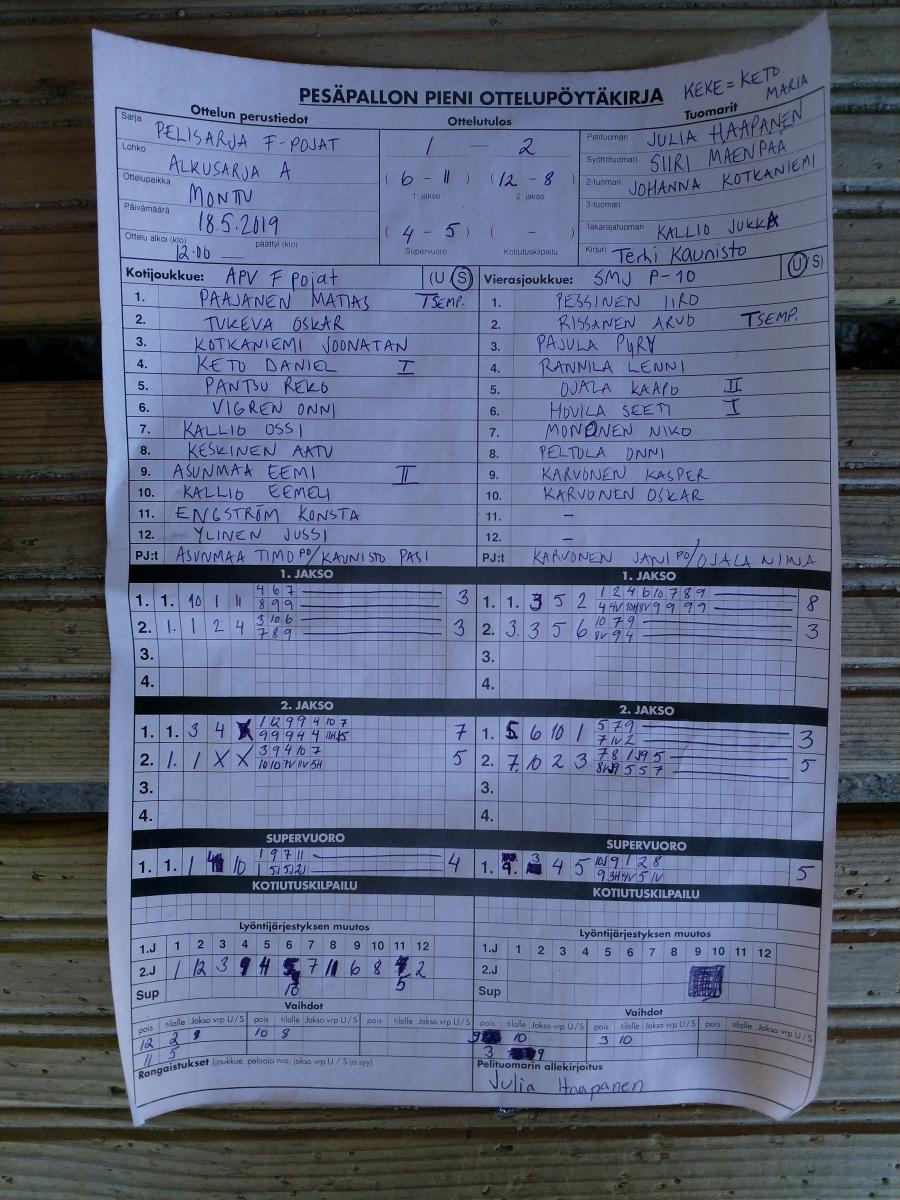 PESÄPALLON PIENI OTTELUPÖYTÄKIRJA
KEKE = KETO
MARIA
Ottelun perustiedot
Sarja PELISARJA F-POJAT
Lohko ALKUSARJA A
Ottelupaikka MONTTU
Päivämäärä 18.5.2019
Ottelu alkoi (klo) 12.00 päättyi (klo)
Ottelutulos
1 — 2
( 6 - 11 ) ( 12 - 8 )
1 jakso 2 jakso
( 4 - 5 ) ( - )
Supervuoro Kotiutuskilpailu
Tuomarit
Pelituomari JULIA HAAPANEN
Syöttötuomari SIIRI MÄENPÄÄ
2-tuomari JOHANNA KOTKANIEMI
3-tuomari
Takarajatuomari KALLIO JUKKA
Kirjuri Terhi Kaunisto
Kotijoukkue: APV F pojat (U S)
1. PAAJANEN MATIAS TSEMP.
2. TUKEVA OSKAR
3. KOTKANIEMI JOONATAN
4. KETO DANIEL I
5. PANTSU REKO
6. VIGREN ONNI
7. KALLIO OSSI
8. KESKINEN AATU
9. ASUNMAA EEMI II
10. KALLIO EEMELI
11. ENGSTRÖM KONSTA
12. YLINEN JUSSI
PJ:t ASUNMAA TIMO PO/KAUNISTO PASI
Vierasjoukkue: SMJ P-10 (U S)
1. PESSINEN IIRO
2. RISSANEN ARVO TSEMP.
3. PAJULA PYRY
4. RANNILA LENNI
5. OJALA KAAPO II
6. HOVILA SEETI I
7. MONONEN NIKO
8. PELTOLA ONNI
9. KARVONEN KASPER
10. KARVONEN OSKAR
11. –
12. –
PJ:t KARVONEN JANI PO/OJALA NIINA
1. JAKSO
1. 1. 10 1 11 4 6 7 3
8 9 9
2. 1. 1 2 4 3 10 6 3
7 8 9
3.
4.
1. JAKSO
1. 1. 3 5 2 1 2 4 6 10 7 8 9 8
4 4V 10H 8V 9 9 9 9
2. 3. 3 5 6 10 7 9 3
8V 9 4
3.
4.
2. JAKSO
1. 1. 3 4 1 12 9 9 4 10 7 7
9 9 9 4 4
2. 1. 1 X X 3 9 4 10 7 5
10 10 7V 11V 5H
3.
4.
2. JAKSO
1. 5. 6 10 1 5 7 9 3
7 1V 2
2. 7. 10 2 3 7 8 1 5 5
9 5 5 7
3.
4.
SUPERVUORO
1. 1. 1 10 1 9 7 11 4
1
SUPERVUORO
1. 9. 3 4 5 9 1 2 8 5
9 3H 4V 5 1V
KOTIUTUSKILPAILU
KOTIUTUSKILPAILU
Lyöntijärjestyksen muutos
1.J 1 2 3 4 5 6 7 8 9 10 11 12
2.J 1 12 3 9 4 5 7 11 6 8 2
Sup 10 5
Lyöntijärjestyksen muutos
1.J 1 2 3 4 5 6 7 8 9 10 11 12
2.J
Sup
Vaihdot
pois tilalle Jakso vrp U / S pois tilalle Jakso vrp U / S pois tilalle Jakso vrp U / S
12 2 10 8
11 5
Vaihdot
pois tilalle Jakso vrp U / S pois tilalle Jakso vrp U / S pois tilalle Jakso vrp U / S
10 3 10
3 9
Rangaistukset (joukkue, pelaaja nro, jakso vrp U / S ja syy)
Pelituomarin allekirjoitus
Julia Haapanen